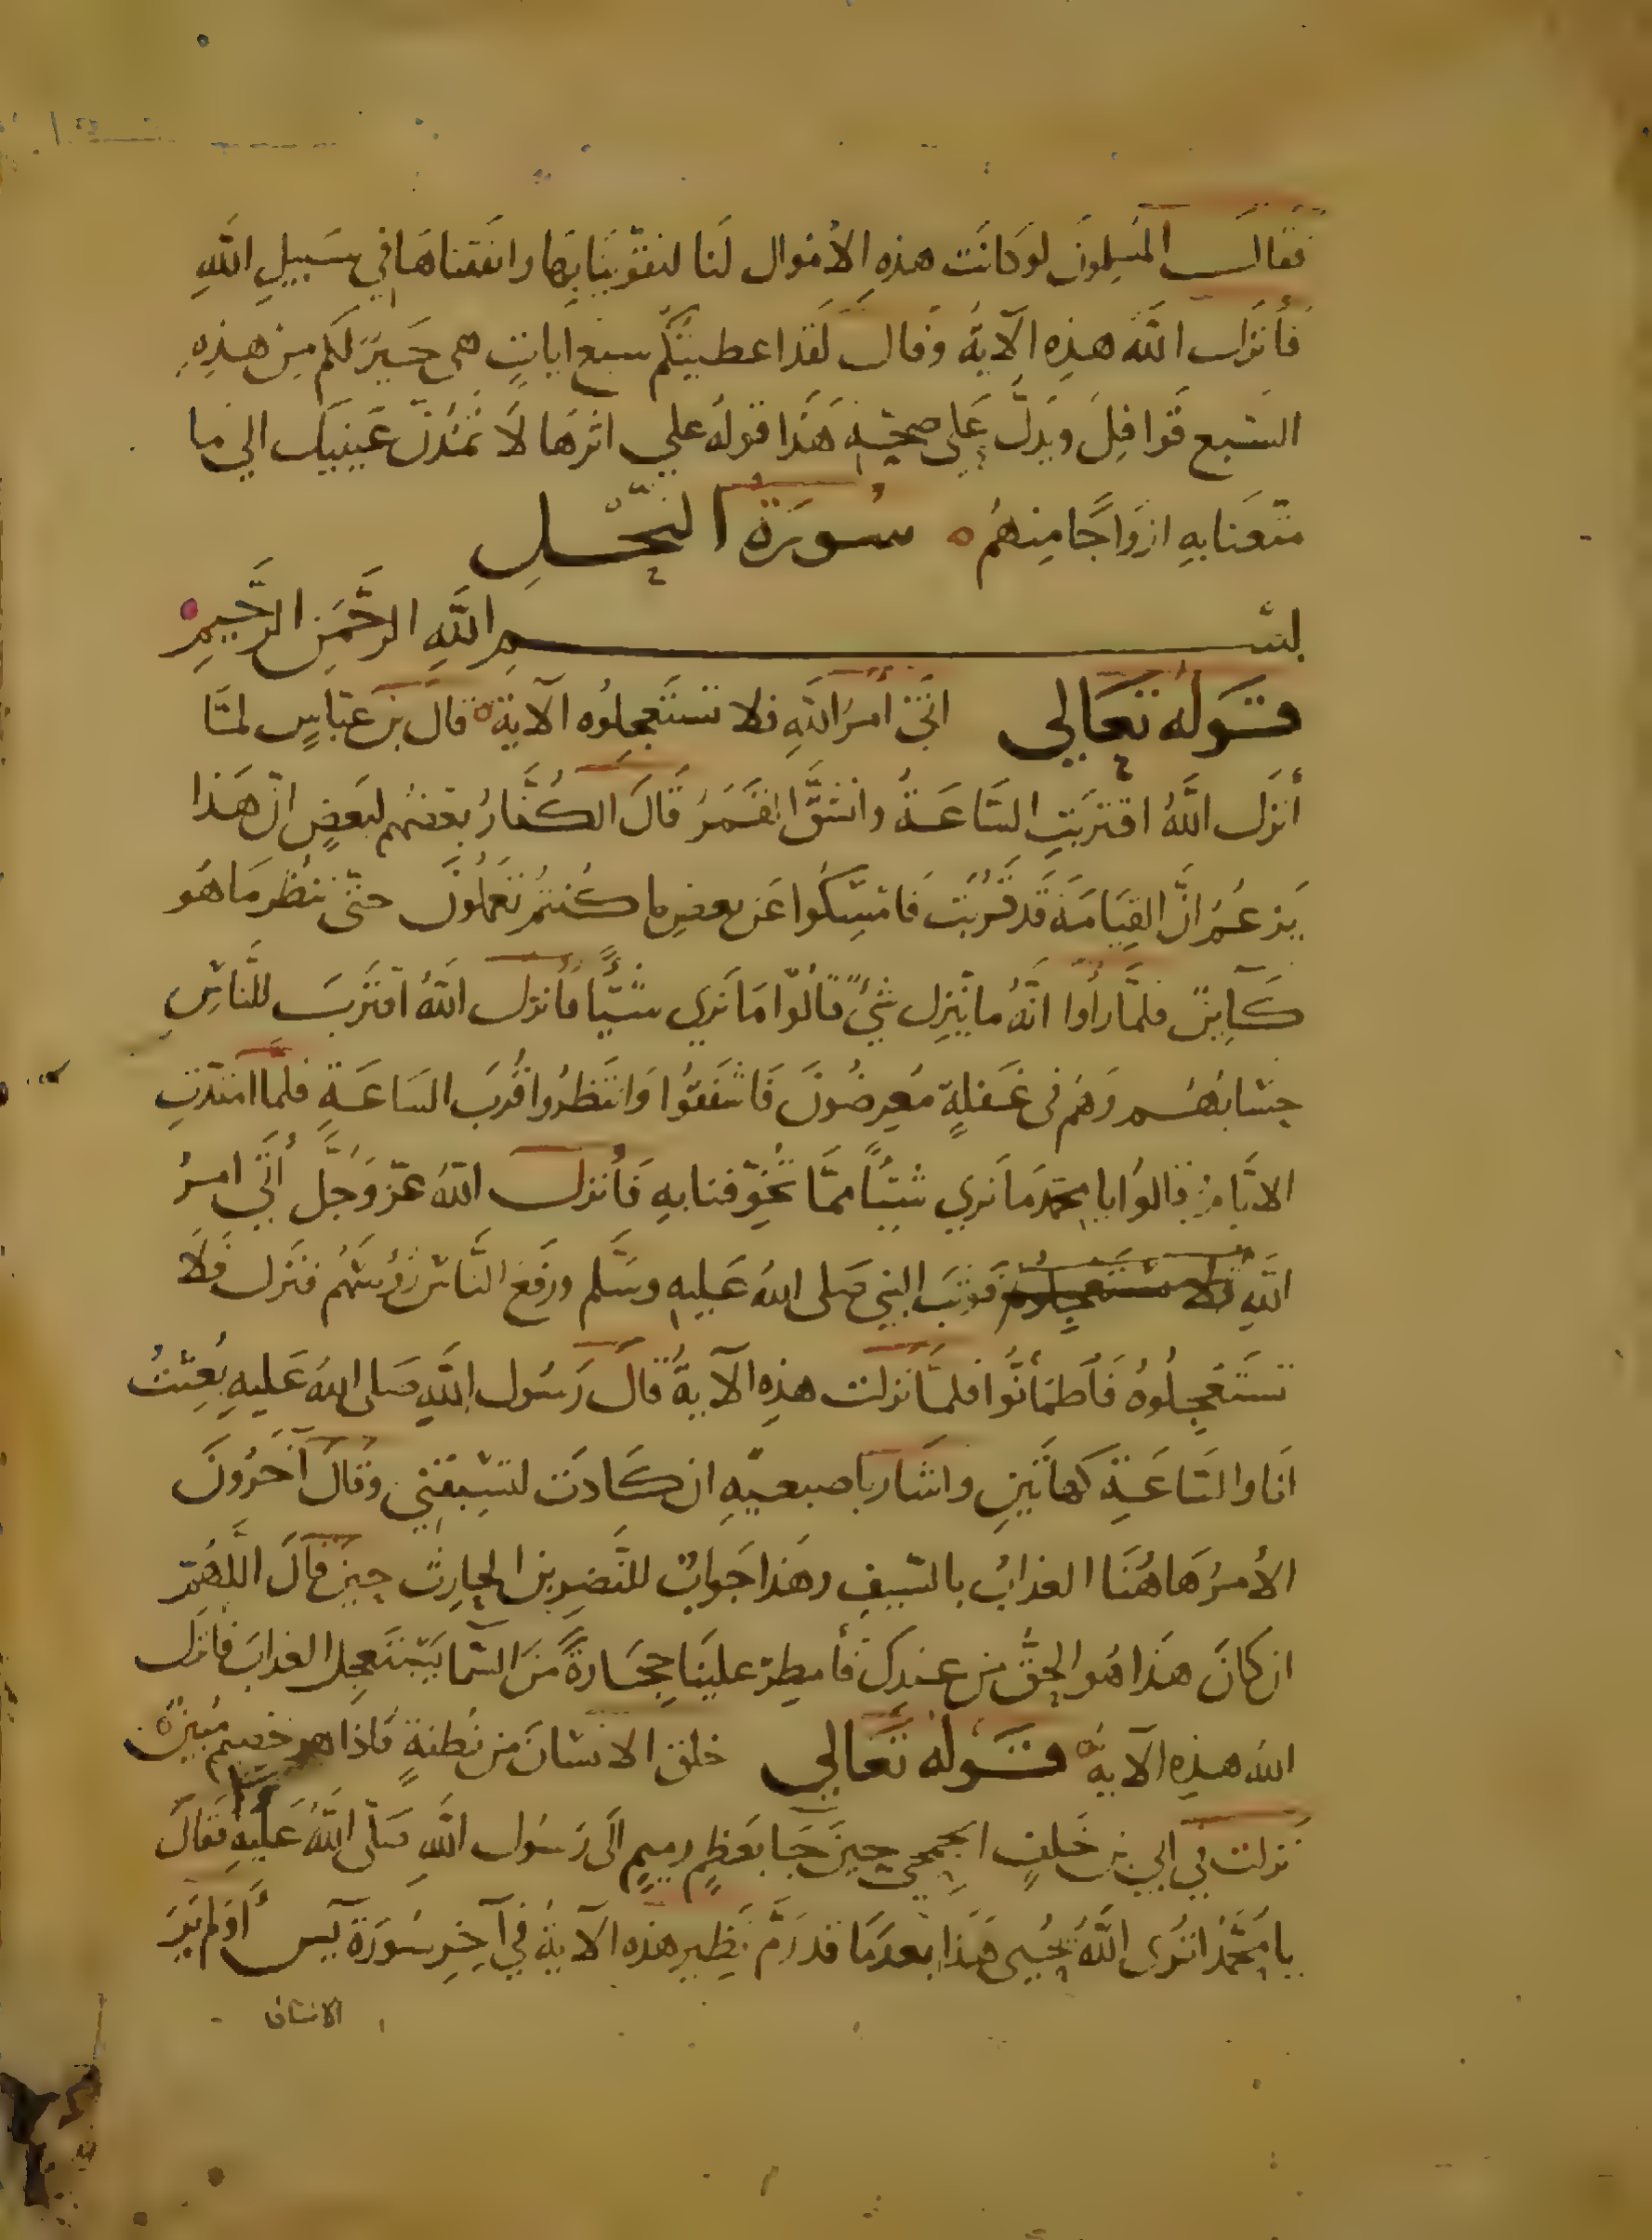 فقال المسلمون لو كانت هذه الأموال لنا لتقوينا بها وانفقناها في سبيل الله
فأنزل الله هذه الآية وقال لقد اعطيتكم سبع ايات هي خير لكم من هذه
السبع قوافل ويدل على صحة هذا قوله على اثرها لا تمدن عينيك الى ما
متعنا به ازواجا منهم سورة النحل
بسم الله الرحمن الرحيم
قوله تعالى اتى أمر الله فلا تستعجلوه الآية قال بن عباس لما
أنزل الله اقتربت الساعة وانشق القمر قال الكفار بعضهم لبعض ان هذا
يزعم ان القيامة قد قربت فامسكوا عن بعض ما كنتم تعملون حتى ننظر ما هو
كاين فلما رأوا انه ما ينزل شيء قالوا ما نرى شيئا فأنزل الله اقترب للناس
حسابهم وهم في غفلة معرضون فاشفقوا وانتظروا قرب الساعة فلما امتدت
الايام قالوا يا محمد ما نرى شيئا مما تخوفنا به فأنزل الله عز وجل أتى امر
الله فلا تستعجلوه فوثب النبي صلى الله عليه وسلم ورفع الناس رؤسهم فنزل فلا
تستعجلوه فأطمأنوا فلما نزلت هذه الآية قال رسول الله صلى الله عليه بعثت
انا والساعة كهاتين واشار بأصبعيه ان كادت لتسبقني وقال آخرون
الأمر هاهنا العذاب بالسيف وهذا جواب للنضر بن الحارث حين قال اللهم
ان كان هذا هو الحق من عندك فأمطر علينا حجارة من السما يستعجل العذاب فأنزل
الله هذه الآية قوله تعالى خلق الانسان من نطفة فاذا هو خصيم مبين
نزلت في ابي بن خلف الجمحي حين جا بعظم رميم الى رسول الله صلى الله عليه فقال
يا محمد اترى الله يحيى هذا بعد ما قد رم نظير هذه الآية في آخر سورة يس أولم ير
الانسان